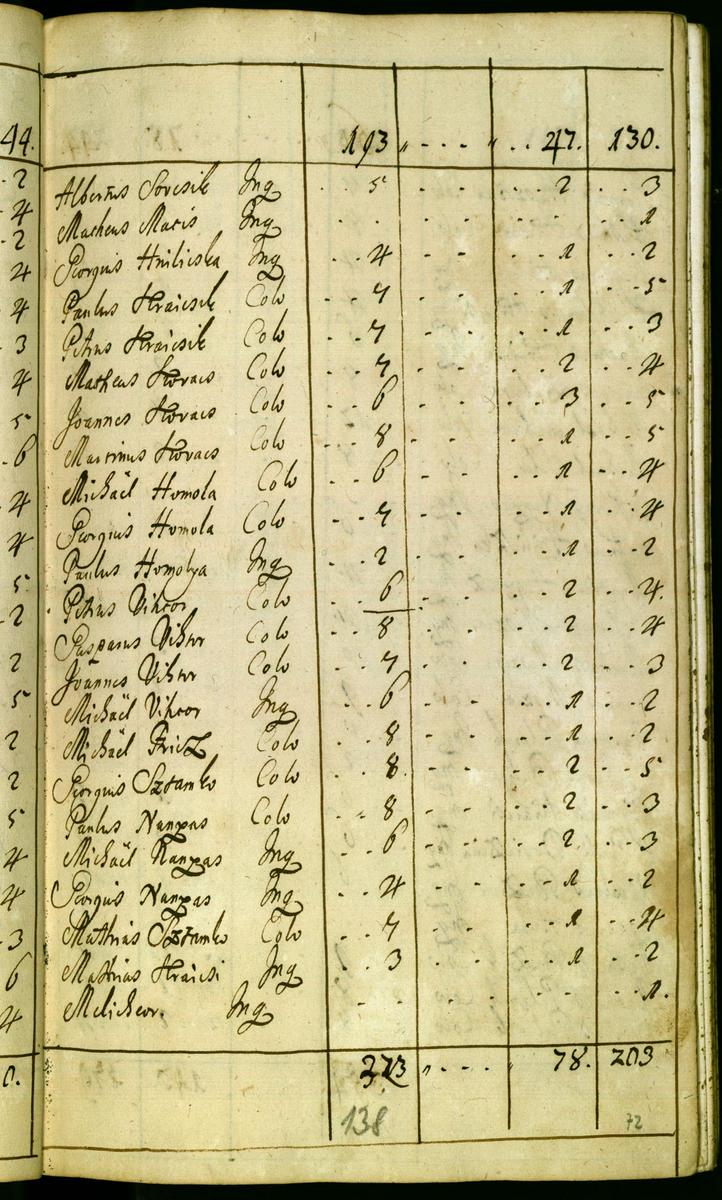 44. 193 " - - - " . . 47. 130.
2 Albertus Sovcsik Ing . . 5 . . . 2 . . 3
4 Matheus Macis Ing . . . . 1
2 Georgius Hnilicska Ing . . 4 . . . 1 . . 2
4 Paulus Kraicsik Colo . . 7 . . . 1 . . 5
4 Petrus Kraicsik Colo . . 7 . . . 1 . . 3
3 Matheus Kovacs Colo . . 7 . . . 2 . . 4
4 Joannes Kovacs Colo . . 6 . . . 3 . . 5
5 Martinus Kovacs Colo . . 8 . . . 1 . . 5
6 Michaël Homola Colo . . 6 . . . 1 . . 4
4 Georgius Homola Colo . . 7 . . . 1 . . 4
4 Paulus Homolya Ing . . 2 . . . 1 . . 2
5 Petrus Viktor Colo . . 6 . . . 2 . . 4.
2 Gasparus Viktor Colo . . 8 . . . 2 . . 4
2 Joannes Viktor Colo . . 7 . . . 2 . . 3
5 Michaël Viktor Ing . . 6 . . . 1 . . 2
2 Michaël Fricz Colo . . 8 . . . 1 . . 2
2 Georgius Sztamko Colo . . 8 . . . 2 . . 5
5 Paulus Nangas Colo . . 8 . . . 2 . . 3
4 Michaël Nangas Ing . . 6 . . . 2 . . 3
4 Georgius Nangas Ing . . 4 . . . 1 . . 2
3 Mathias Sztamko Colo . . 7 . . . 1 . . 4
6 Mathias Kraicsi Ing . . 3 . . . 1 . . 2
4 Melicheor. Ing . . . . 1.
0. 323 " - - - " 78. 203
138 72